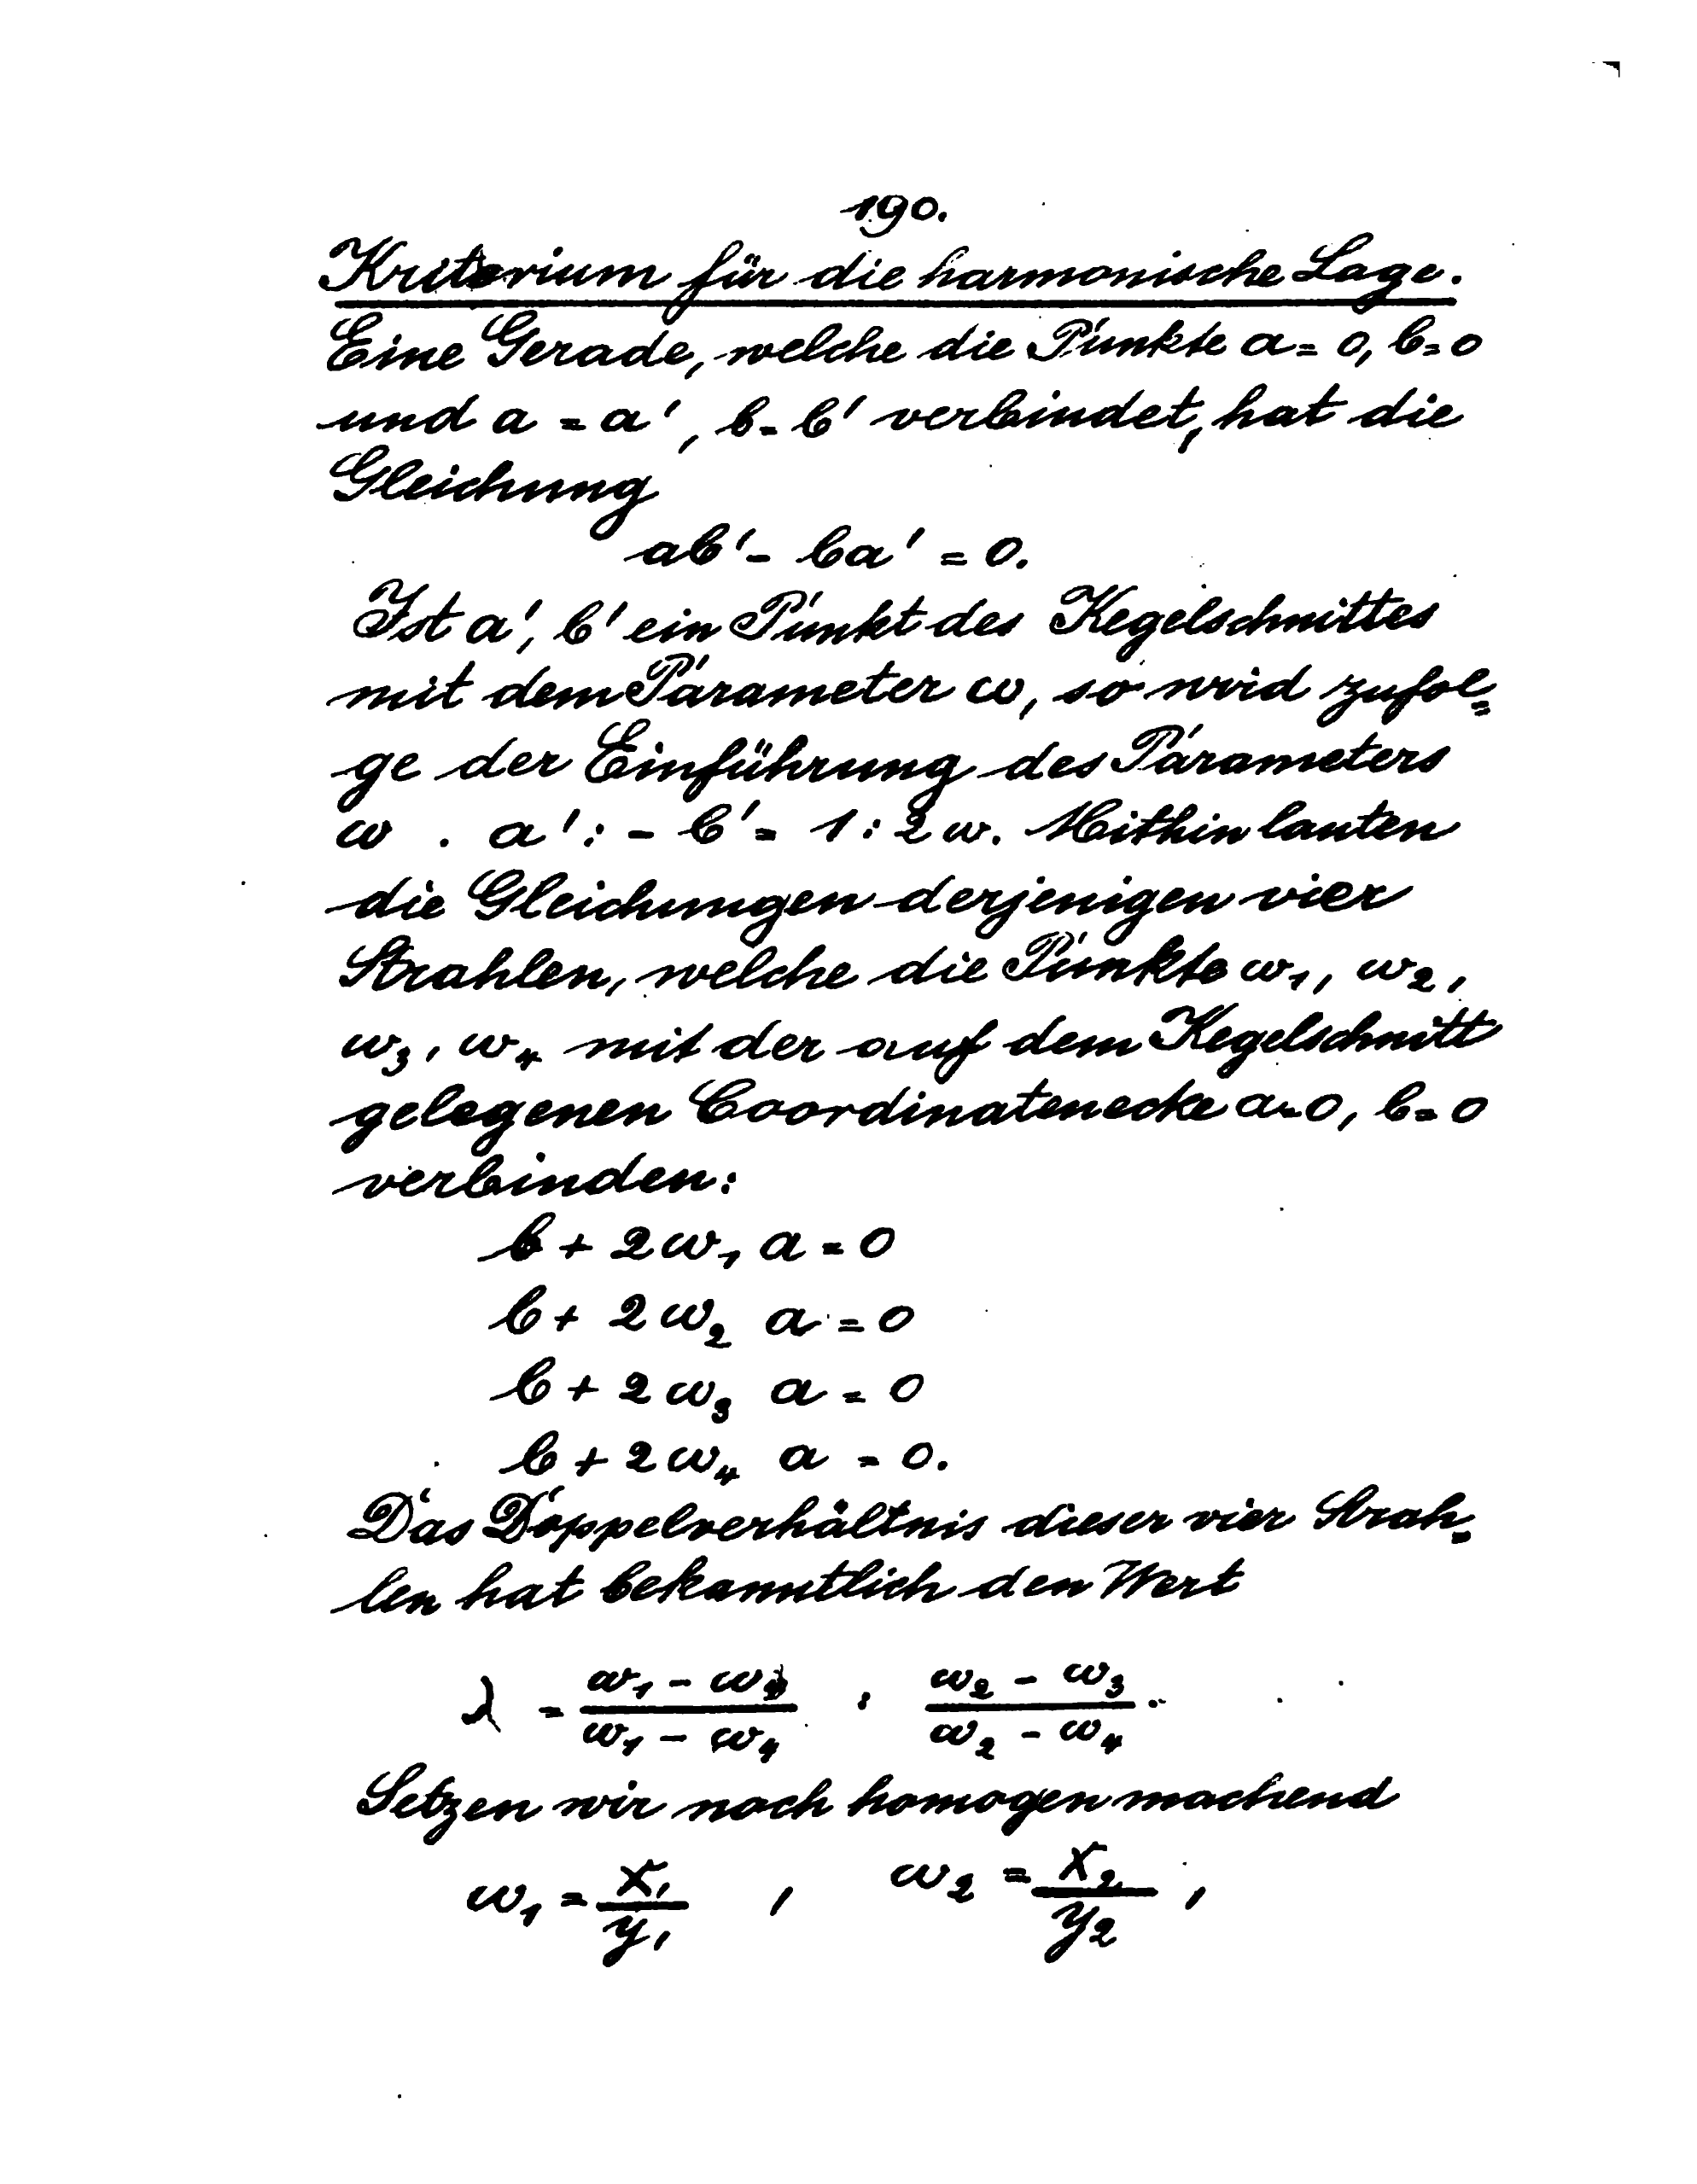 190.
Kriterium für die harmonische Lage.
Eine Gerade, welche die Punkte a = 0, b = 0
und a = a', b = b' verbindet, hat die
Gleichung
ab' - ba' = 0.
Ist a', b' ein Punkt des Kegelschnittes
mit dem Parameter ω, so wird zufol=
ge der Einführung des Parameters
ω . a' : - b' = 1 : 2 ω. Mithin lauten
die Gleichungen derjenigen vier
Strahlen, welche die Punkte ω₁, ω₂,
ω₃, ω₄ mit der auf dem Kegelschnitt
gelegenen Coordinatenecke a = 0, b = 0
verbinden:
b + 2 ω₁ a = 0
b + 2 ω₂ a = 0
b + 2 ω₃ a = 0
b + 2 ω₄ a = 0.
Das Doppelverhältnis dieser vier Strah=
len hat bekanntlich den Wert
λ = (ω₁ - ω₃)/(ω₁ - ω₄) : (ω₂ - ω₃)/(ω₂ - ω₄).
Setzen wir noch homogen machend
ω₁ = x₁/y₁ , ω₂ = x₂/y₂ ,